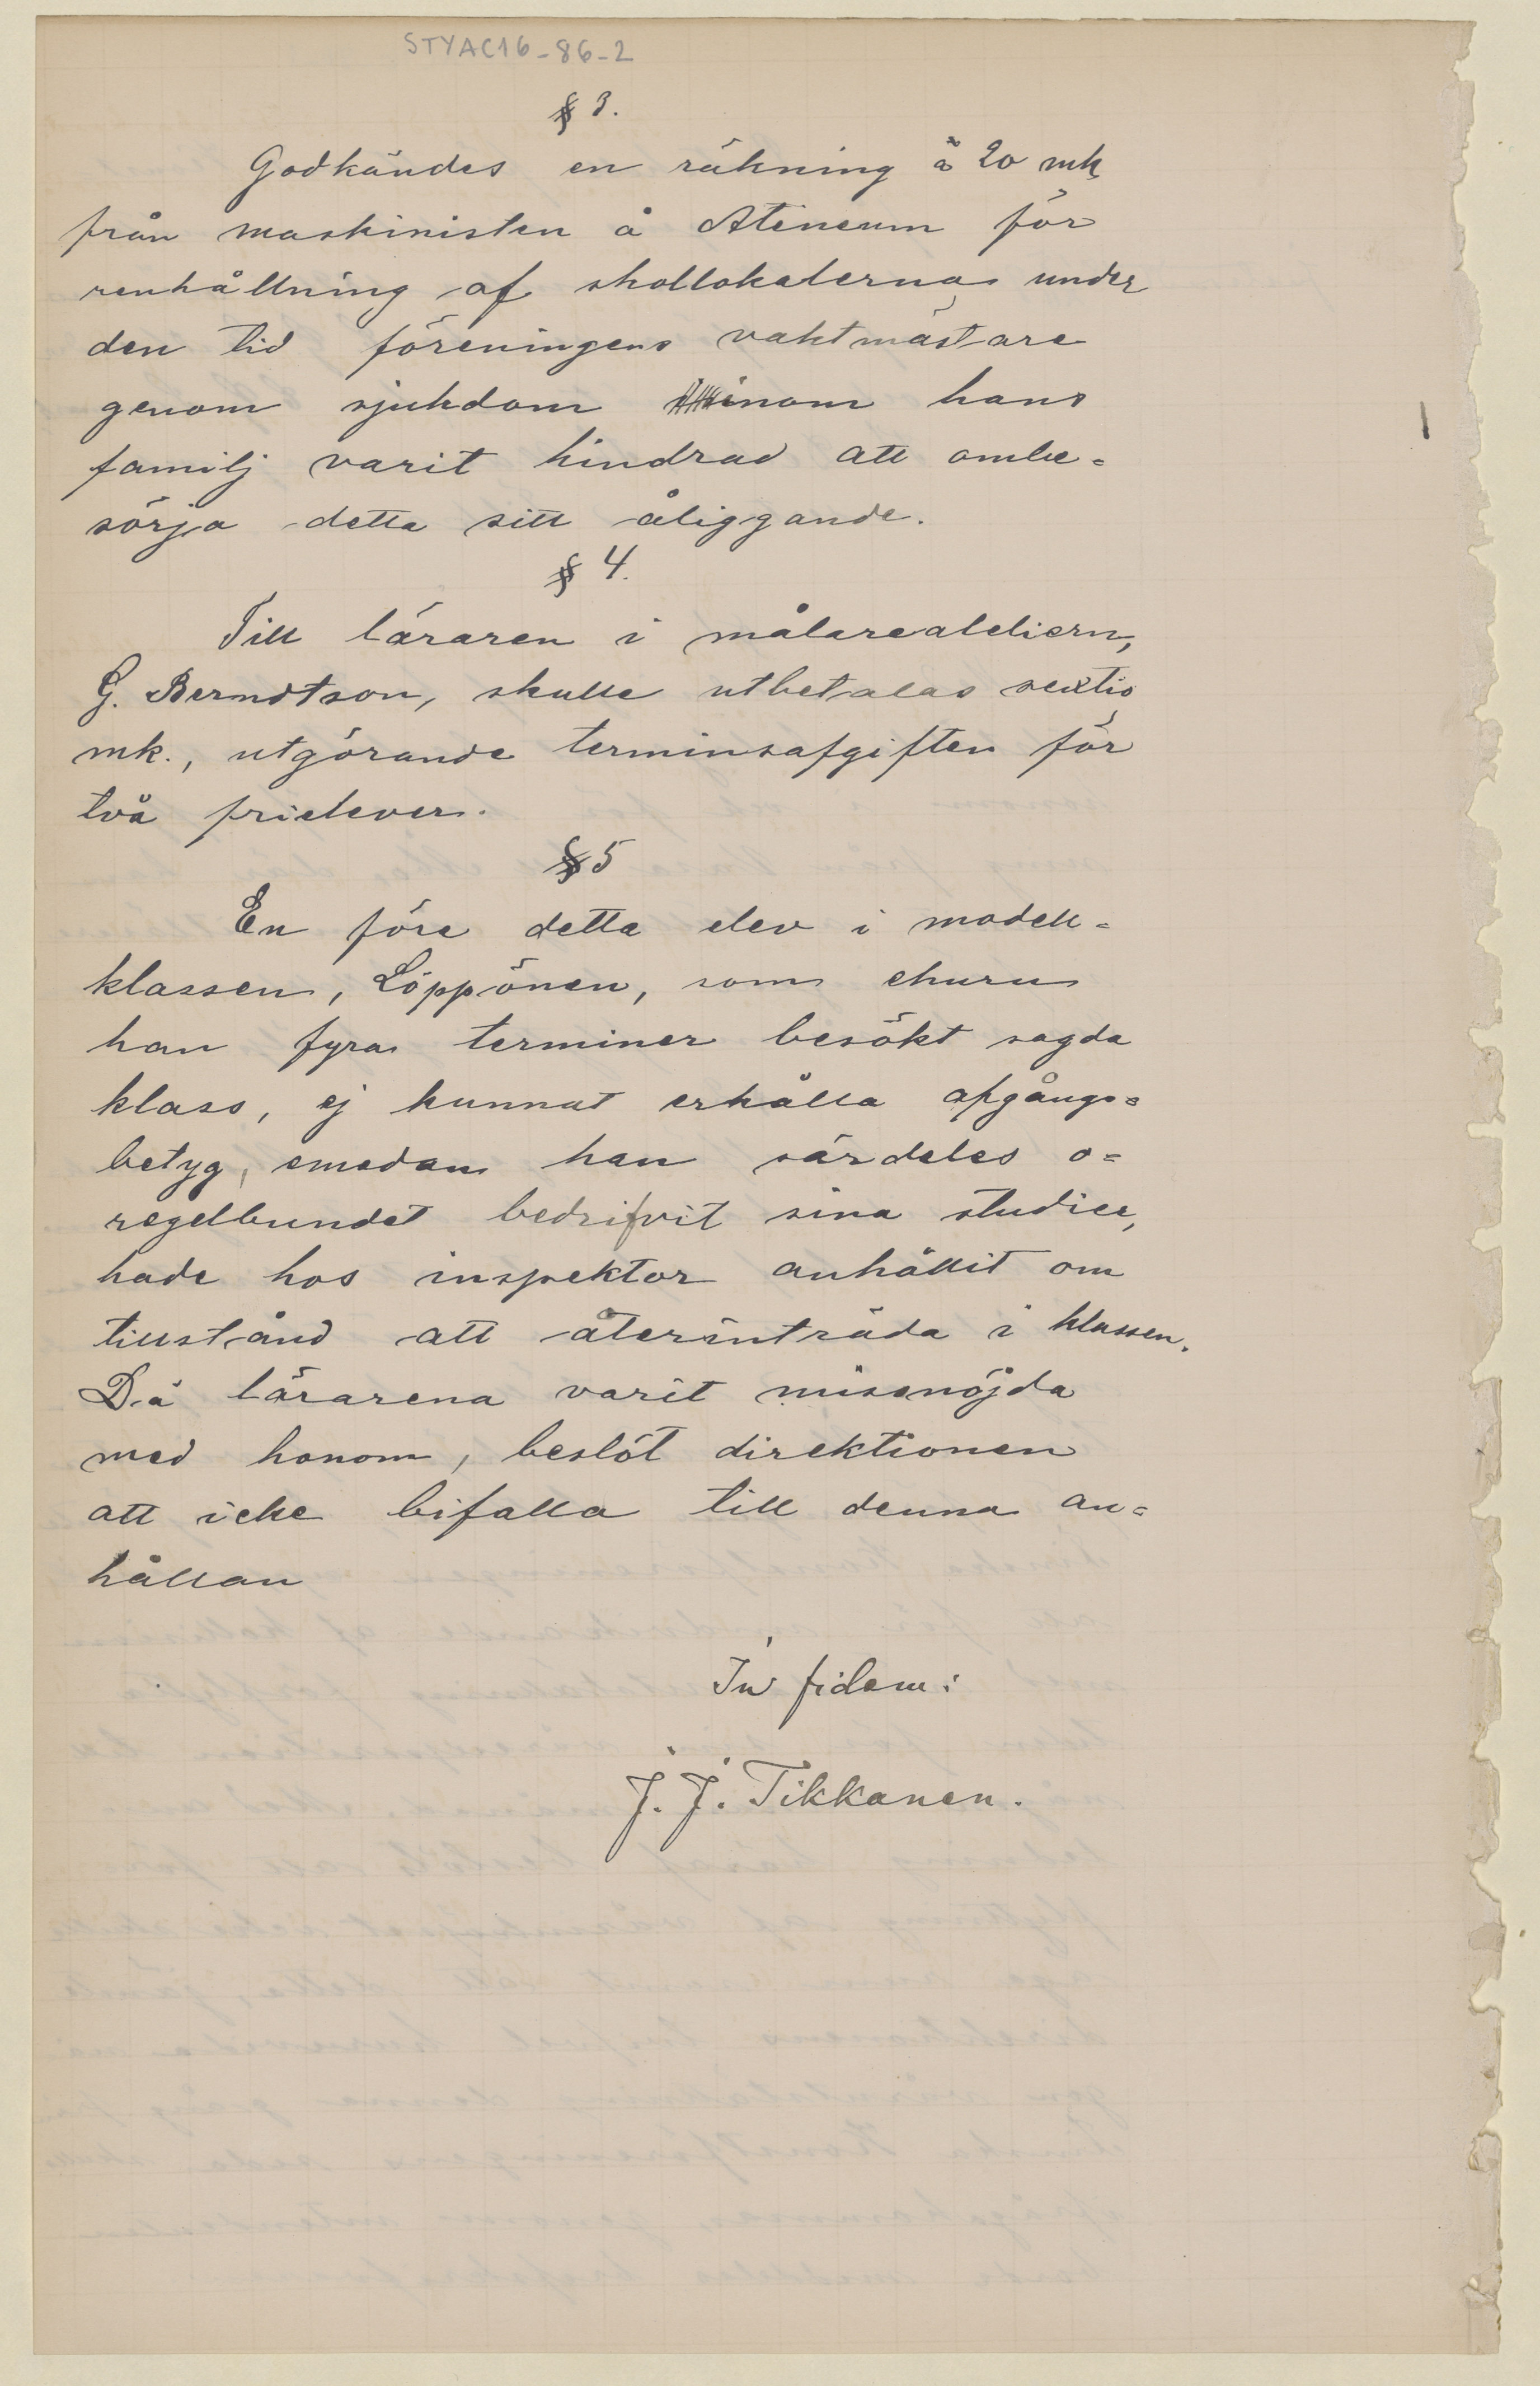 STYAC16-86-2
§ 3.
Godkändes en räkning å 20 mk
från maskinisten å Ateneum för
renhållning af skollokalerna under
den tid föreningens vaktmästare
genom sjukdom inom hans
familj varit hindrad att ombe=
sörja detta sitt åliggande.
§ 4.
Till läraren i målareateliern,
G. Berndtson, skulle utbetalas sextio
mk., utgörande terminsafgiften för
två frielever.
§ 5
En före detta elev i modell=
klassen, Löppönen, som ehuru
han fyra terminer besökt sagda
klass, ej kunnat erhålla afgångs=
betyg, emedan han särdeles o=
regelbundet bedrifvit sina studier,
hade hos inspektor anhållit om
tillstånd att återinträda i klassen.
Då lärarena varit missnöjda
med honom, beslöt direktionen
att icke bifalla till denna an=
hållan
In fidem:
J. J. Tikkanen.